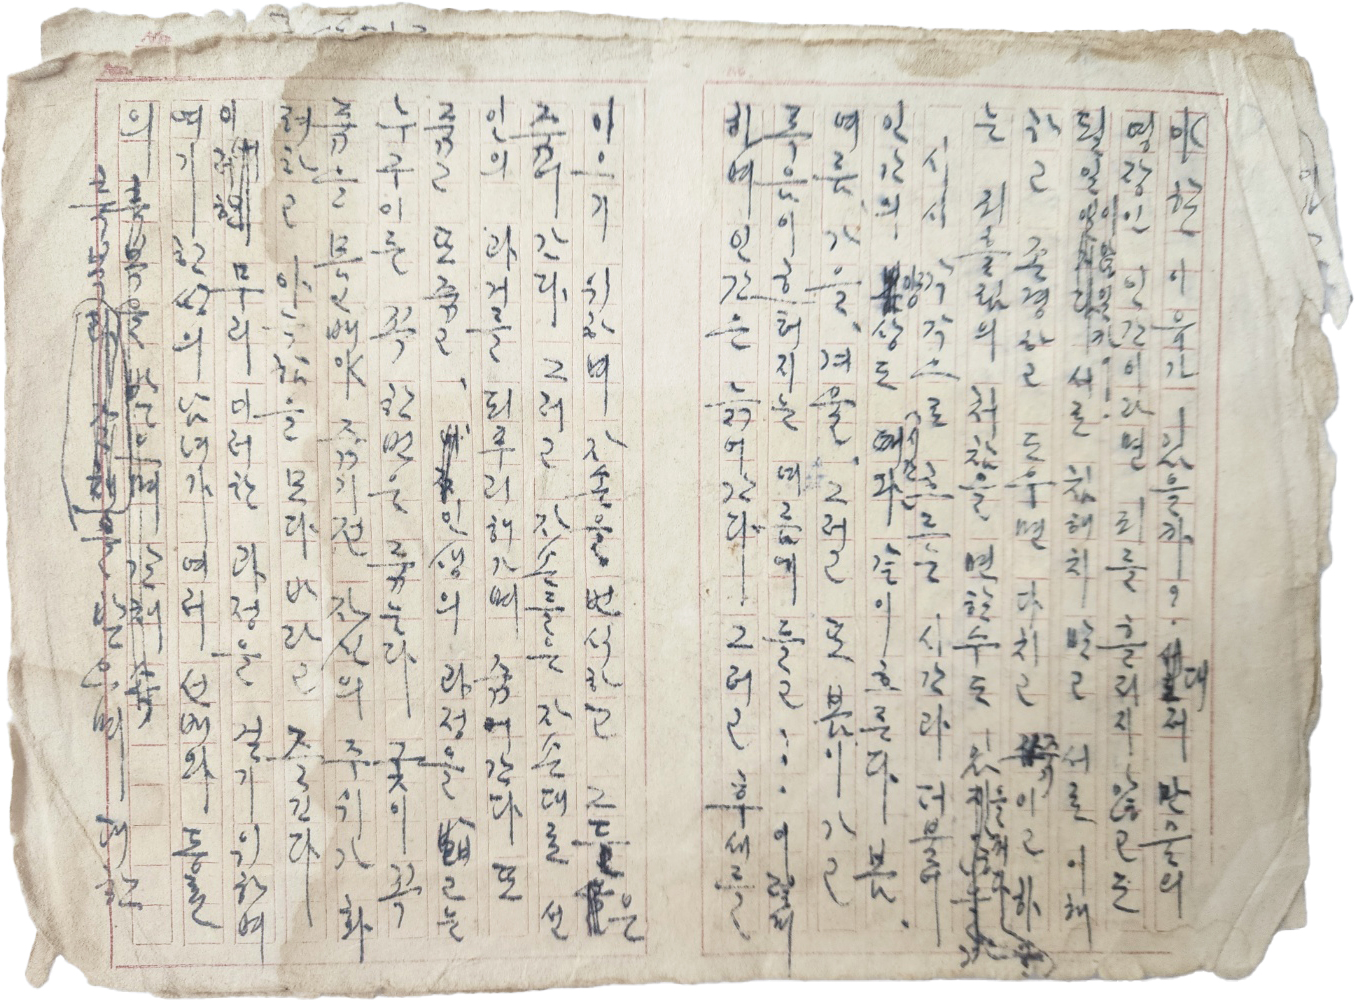 야한 이유가 있을까? 대저 만물의
영장인 인간이라면 피를 흘리지 않고는
될 일 이 모양일까! 서로 침해치 말고 서로 이해
하고 존경하고 도우면 다치고 죽이고 하
는 피흘림의 처참을 면할수도
시시 각각으로 흐르는 시간과 더불어
인간의 양상도 때와 같이 흐른다. 봄,
여름, 가을, 겨울, 그리고 또 봄이 가고
여름에 들고... 이렇게
하며 인간은 늙어간다. 그리고 후세를
이으기 위하여 자손을 번식하고 그들은
죽어 간다. 그리고 자손들은 자손대로 선
인의 과거를 되푸리해가며 죽어간다 또
죽고 또 죽고, 인생의 과정을 밟고는
누구이든 꼭 한번은 죽는다 꽃이 꼭
죽기전 자신의 주기가 화
려하고 아늑함을 모다 바라고 즐긴다
이러한 무리 이러한 과정을 걷기 위하여
여기 한쌍의 남녀가 여러 선배와 동문
의 축복을 받으며
축복과 을 받으며